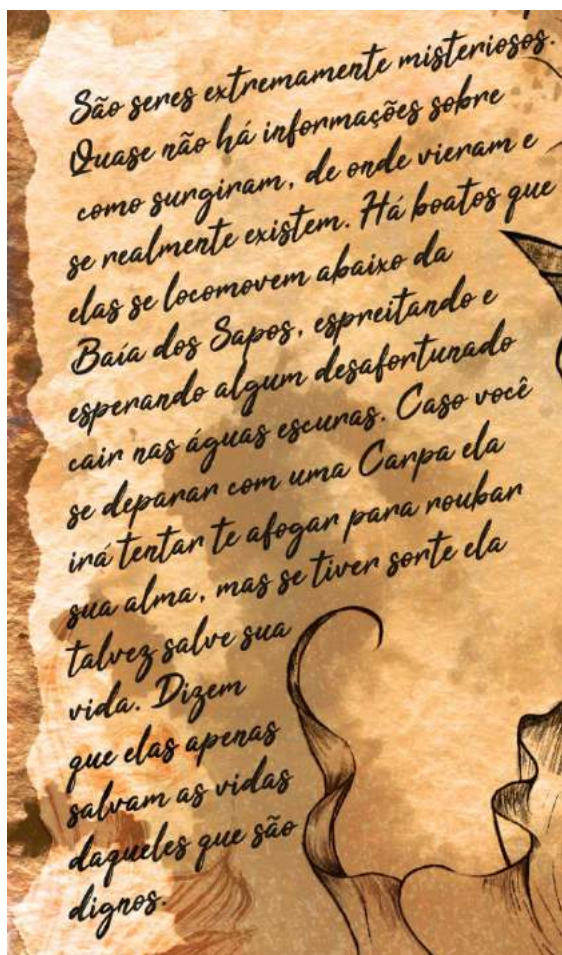 São seres extremamente misteriosos.
Quase não há informações sobre
como surgiram, de onde vieram e
se realmente existem. Há boatos que
elas se locomovem abaixo da
Baía dos Sapos, espreitando e
esperando algum desafortunado
cair nas águas escuras. Caso você
se deparar com uma Carpa ela
irá tentar te afogar para roubar
sua alma, mas se tiver sorte ela
talvez salve sua
vida. Dizem
que elas apenas
salvam as vidas
daqueles que são
dignos.